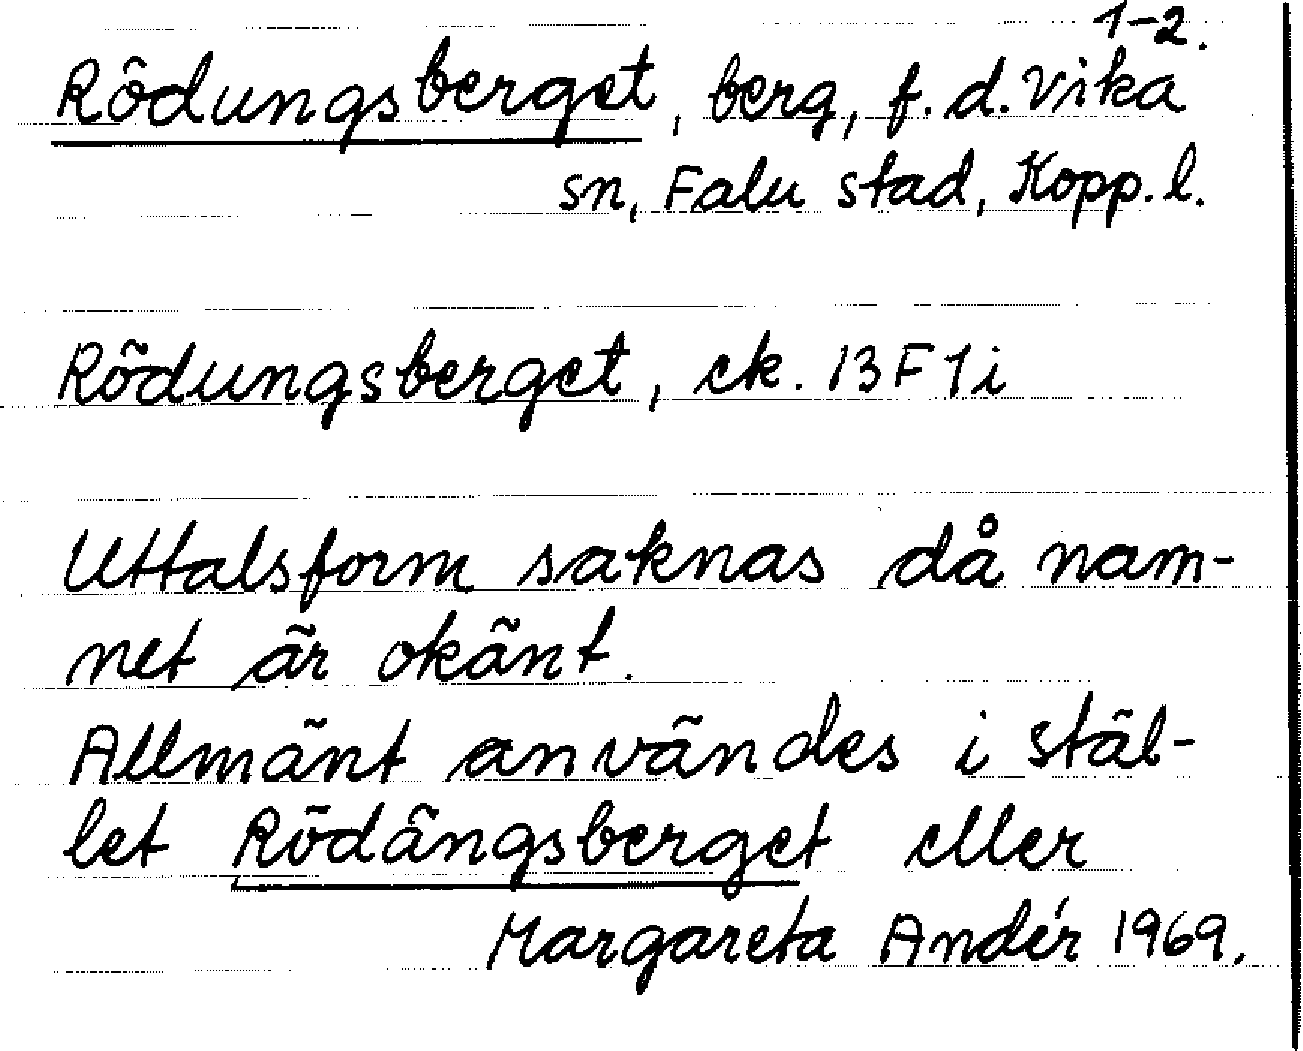 1-2.
Rödungsberget, berg, f.d. Vika
sn, Falu stad, Kopp. l.
Rödungsberget, ek. 13F1i
Uttalsform saknas då nam-
net är okänt.
Allmänt användes i stäl-
let Rödängsberget eller
Margareta Andér 1969.